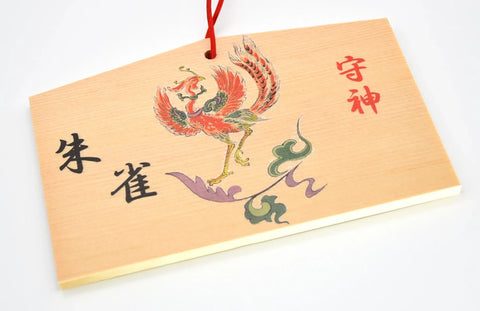 守神
朱雀